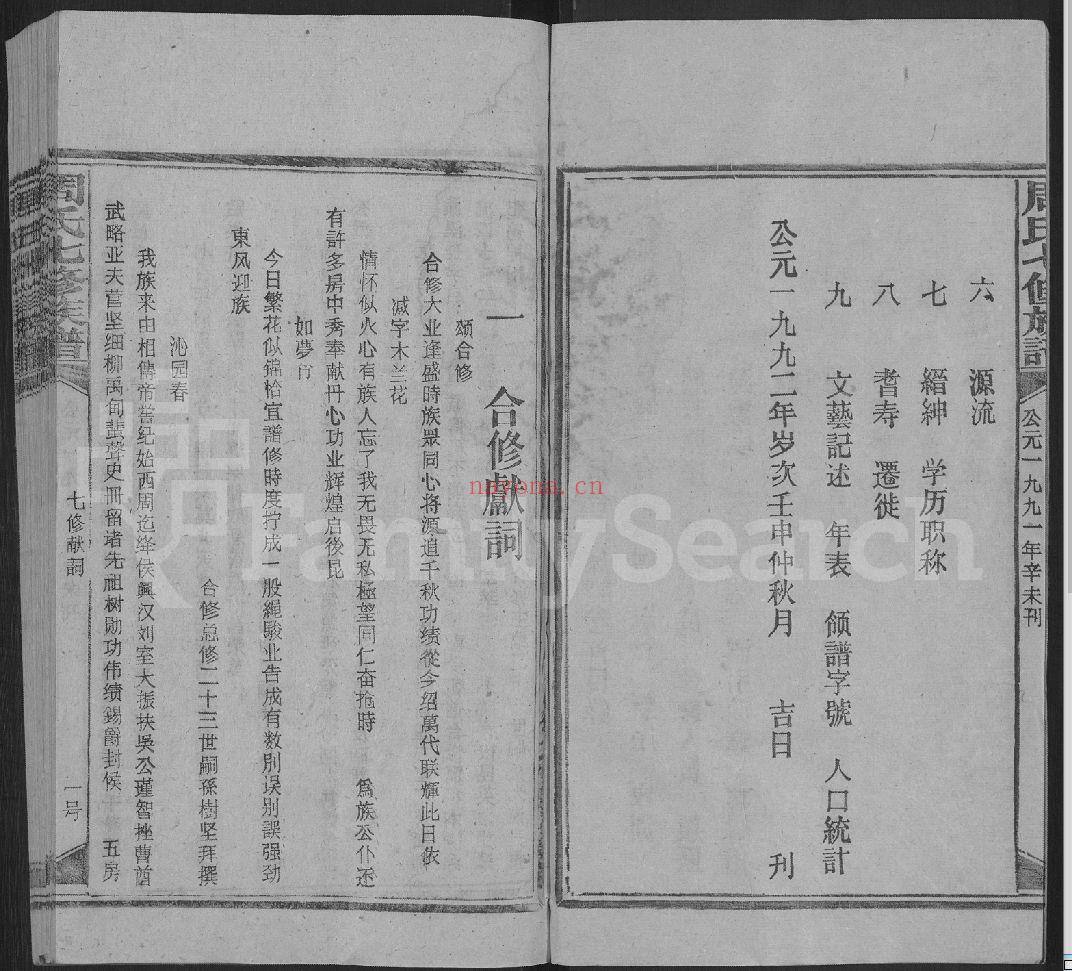 周氏七修族譜
公元一九九一年辛未刊
六 源流
七 縉紳 学历职称
八 耆寿 遷徙
九 文藝記述 年表 领譜字號 人口統計
公元一九九二年岁次壬申仲秋月 吉日 刊
一 合修獻詞
頌合修
合修大业逢盛時族眾同心将源追千秋功绩從今绍萬代联輝此日依
减字木兰花
情怀似火心有族人忘了我无畏无私極望同仁奋抢時 爲族公仆还
有許多房中秀奉献丹心功业辉煌启後昆
如夢
今日繁花似錦恰宜譜修時度拧成一股繩駿业告成有数别误别誤强劲
东风迎族
合修总修二十三世嗣孫樹坚拜撰
沁园春
我族来由相傳帝喾纪始西周迄绛侯興汉刘室大振扶吳公瑾智挫曹酋
武略亚夫营坚细柳禹甸蜚聲史冊留诸先祖树勋功伟绩錫爵封候 五房
周氏七修族譜
七修献詞
一号
nayona.cn
FamilySearch